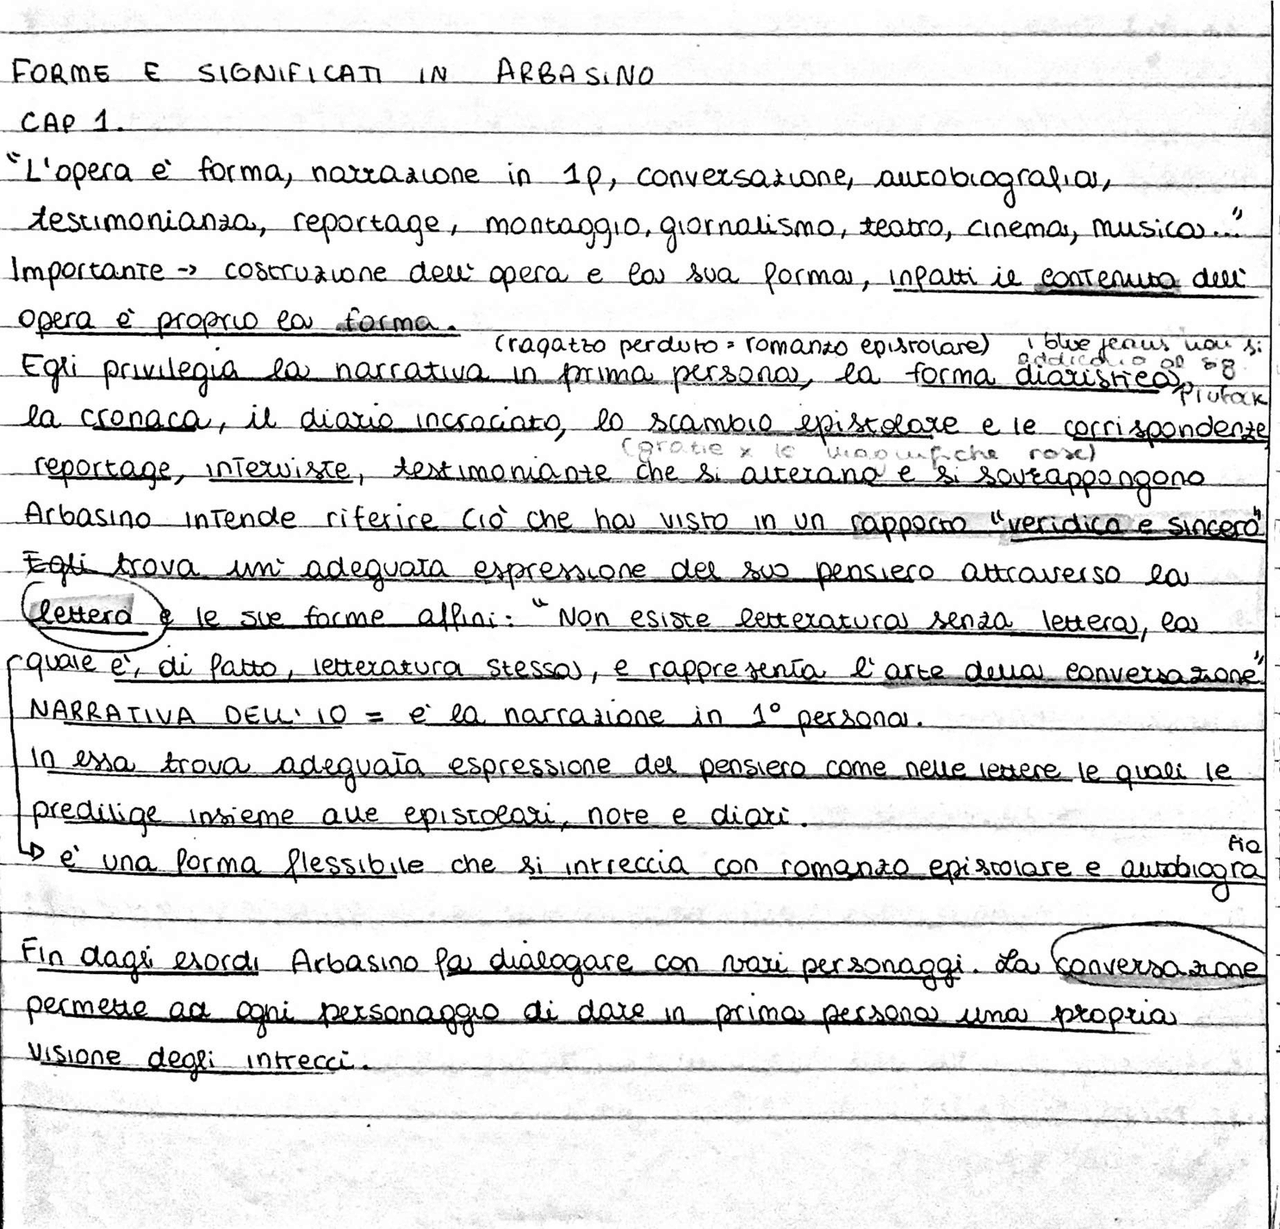 FORME E SIGNIFICATI IN ARBASINO
CAP 1.
"L'opera è forma, narrazione in 1p, conversazione, autobiografia,
testimonianza, reportage, montaggio, giornalismo, teatro, cinema, musica..."
Importante -> costruzione dell'opera e la sua forma, infatti il contenuto dell'
opera è proprio la forma.
(ragazzo perduto = romanzo epistolare) i blue jeans non si
addicono al
Egli privilegia la narrativa in prima persona, la forma diaristica,
la cronaca, il diario incrociato, lo scambio epistolare e le corrispondenze
(grazie x le magnifiche rose)
reportage, interviste, testimonianze che si alterano e si sovrappongono
Arbasino intende riferire ciò che ha visto in un rapporto "veridico e sincero"
Egli trova un'adeguata espressione del suo pensiero attraverso la
lettera e le sue forme affini: "Non esiste letteratura senza lettera, la
quale è, di fatto, letteratura stessa, e rappresenta l'arte della conversazione"
NARRATIVA DELL'IO = è la narrazione in 1° persona.
In essa trova adeguata espressione del pensiero come nelle lettere le quali le
predilige insieme alle epistolari, note e diari.
è una forma flessibile che si intreccia con romanzo epistolare e autobiogra
fia
Fin dagli esordi Arbasino fa dialogare con vari personaggi. La conversazione
permette ad ogni personaggio di dare in prima persona una propria
visione degli intrecci.